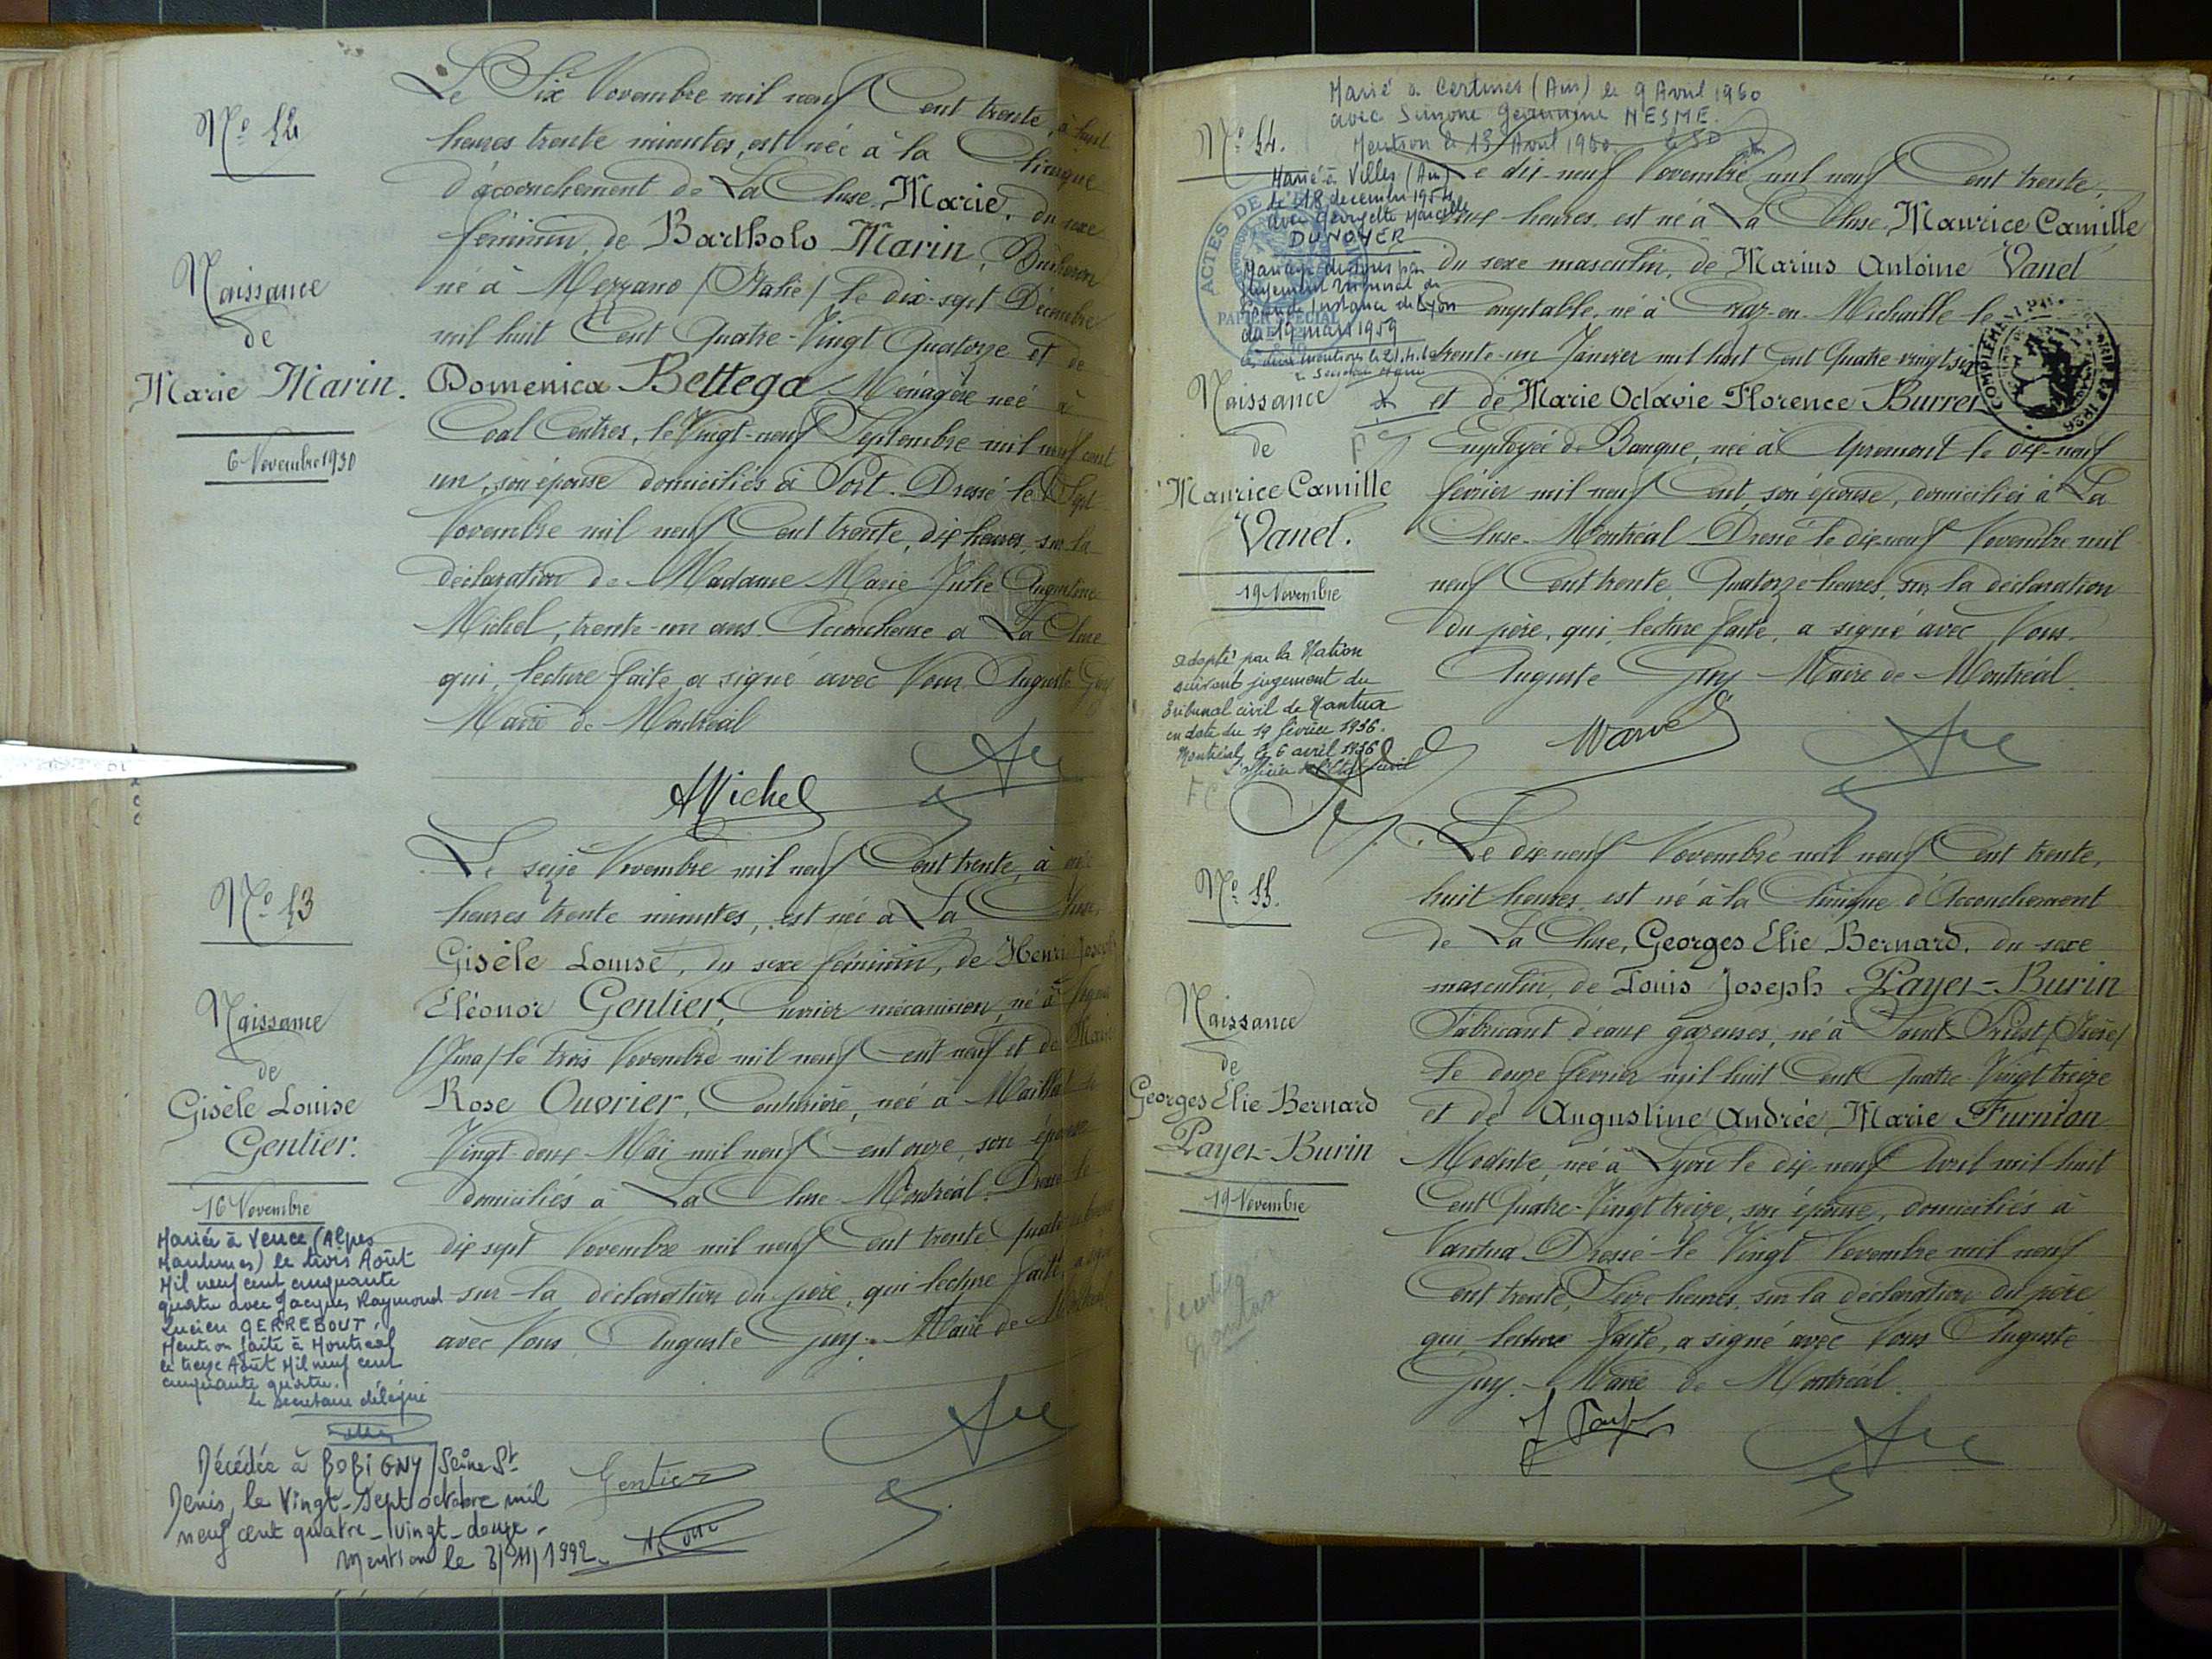 Naissance
de
Marie Marin.
6 Novembre 1930
Le Six Novembre mil neuf Cent trente, à huit
heures trente minutes, est née à la Clinique
d'accouchement de La Cluse, Marie, du sexe
féminin, de Bartholo Marin, Bûcheron
né à Mezzano / Italie / le dix-sept Décembre
mil huit Cent Quatre-Vingt Quatorze et de
Domenica Bettega Ménagère née à
Coal Centres, le Vingt-neuf Septembre mil neuf cent
un, son épouse domiciliés à Port. Dressé le Sept
Novembre mil neuf Cent trente, dix heures, sur la
déclaration de Madame Marie Julie Augustine
Michel, trente-un ans Accoucheuse a La Cluse
qui, lecture faite a signé avec Nous Auguste Guy
Maire de Montréal
AMichel
Naissance
de
Gisèle Louise
Gentier.
16 Novembre
Mariée à Vence (Alpes
Maritimes) le trois Août
Mil neuf cent cinquante
quatre avec Jacques Raymond
Lucien GERREBOUT
Mention faite à Montréal
le treize Août Mil neuf cent
cinquante quatre.
Le Secrétaire délégué
Décédée à BOBIGNY / Seine St
Denis, le Vingt-Sept octobre mil
neuf cent quatre-vingt-douze.
Mention le 3/11/1992
Le seize Novembre mil neuf Cent trente, à
heures trente minutes, est née à La Cluse,
Gisèle Louise, du sexe féminin, de Henri Joseph
Eléonor Gentier, Ouvrier mécanicien, né à
/Jura/ le trois Novembre mil neuf Cent neuf et de Marie
Rose Ouvrier, Couturière, née à Maillat le
Vingt-deux Mai mil neuf Cent onze, son épouse
domiciliés à La Cluse-Montréal. Dressé le
dix sept Novembre mil neuf Cent trente Quatorze heures
sur la déclaration du père, qui lecture faite, a signé
avec Nous Auguste Guy. Maire de Montréal
Gentier
Marié à Certines (Ain) le 9 Avril 1960
avec Simone Germaine NESME.
Mention le 13 Avril 1960.
Nº 54.
Marié à Villes (Ain)
le 18 décembre 1954
avec Georgette Marcelle
DUNOYER
Mariage dissous par
Jugement Tribunal de
Grande Instance de Lyon
du 19 mars 1959
ACTES DE
PAPIER SPÉCIAL
Naissance
de
Maurice Camille
Vanel.
19 Novembre
adopté par la Nation
suivant jugement du
Tribunal civil de Nantua
en date du 19 février 1936.
Montréal, le 6 avril 1936
L'officier de l'Etat civil
Le dix-neuf Novembre mil neuf Cent trente,
heures, est né à La Cluse, Maurice Camille
du sexe masculin, de Marius Antoine Vanel
Comptable, né à Craz-en-Michaille le
trente-un Janvier mil huit Cent Quatre vingt
et de Marie Octavie Florence Burret
Employée de Banque, née à Apremont le dix-neuf
février mil neuf Cent, son épouse, domiciliés à La
Cluse-Montréal Dressé le dix-neuf Novembre mil
neuf Cent trente, Quatorze heures, sur la déclaration
du père, qui, lecture faite, a signé avec Nous
Auguste Guy Maire de Montréal.
COMPLÉMENT
Vanel
Nº 55.
Naissance
de
Georges Elie Bernard
Payer-Burin
19 Novembre
Nantua
Le dix neuf Novembre mil neuf Cent trente,
huit heures, est né à la Clinique d'Accouchement
de La Cluse, Georges Elie Bernard, du sexe
masculin, de Louis Joseph Payer-Burin
Fabricant d'eaux gazeuses, né à Saint-Priest / Isère /
le douze février mil huit Cent Quatre-Vingt treize
et de Augustine Andrée Marie Furnion
Modiste, née à Lyon le dix-neuf Avril mil huit
Cent Quatre-Vingt treize, son épouse, domiciliés à
Nantua. Dressé le Vingt Novembre mil neuf
Cent trente, Seize heures, sur la déclaration du père
qui, lecture faite, a signé avec Nous Auguste
Guy. Maire de Montréal.